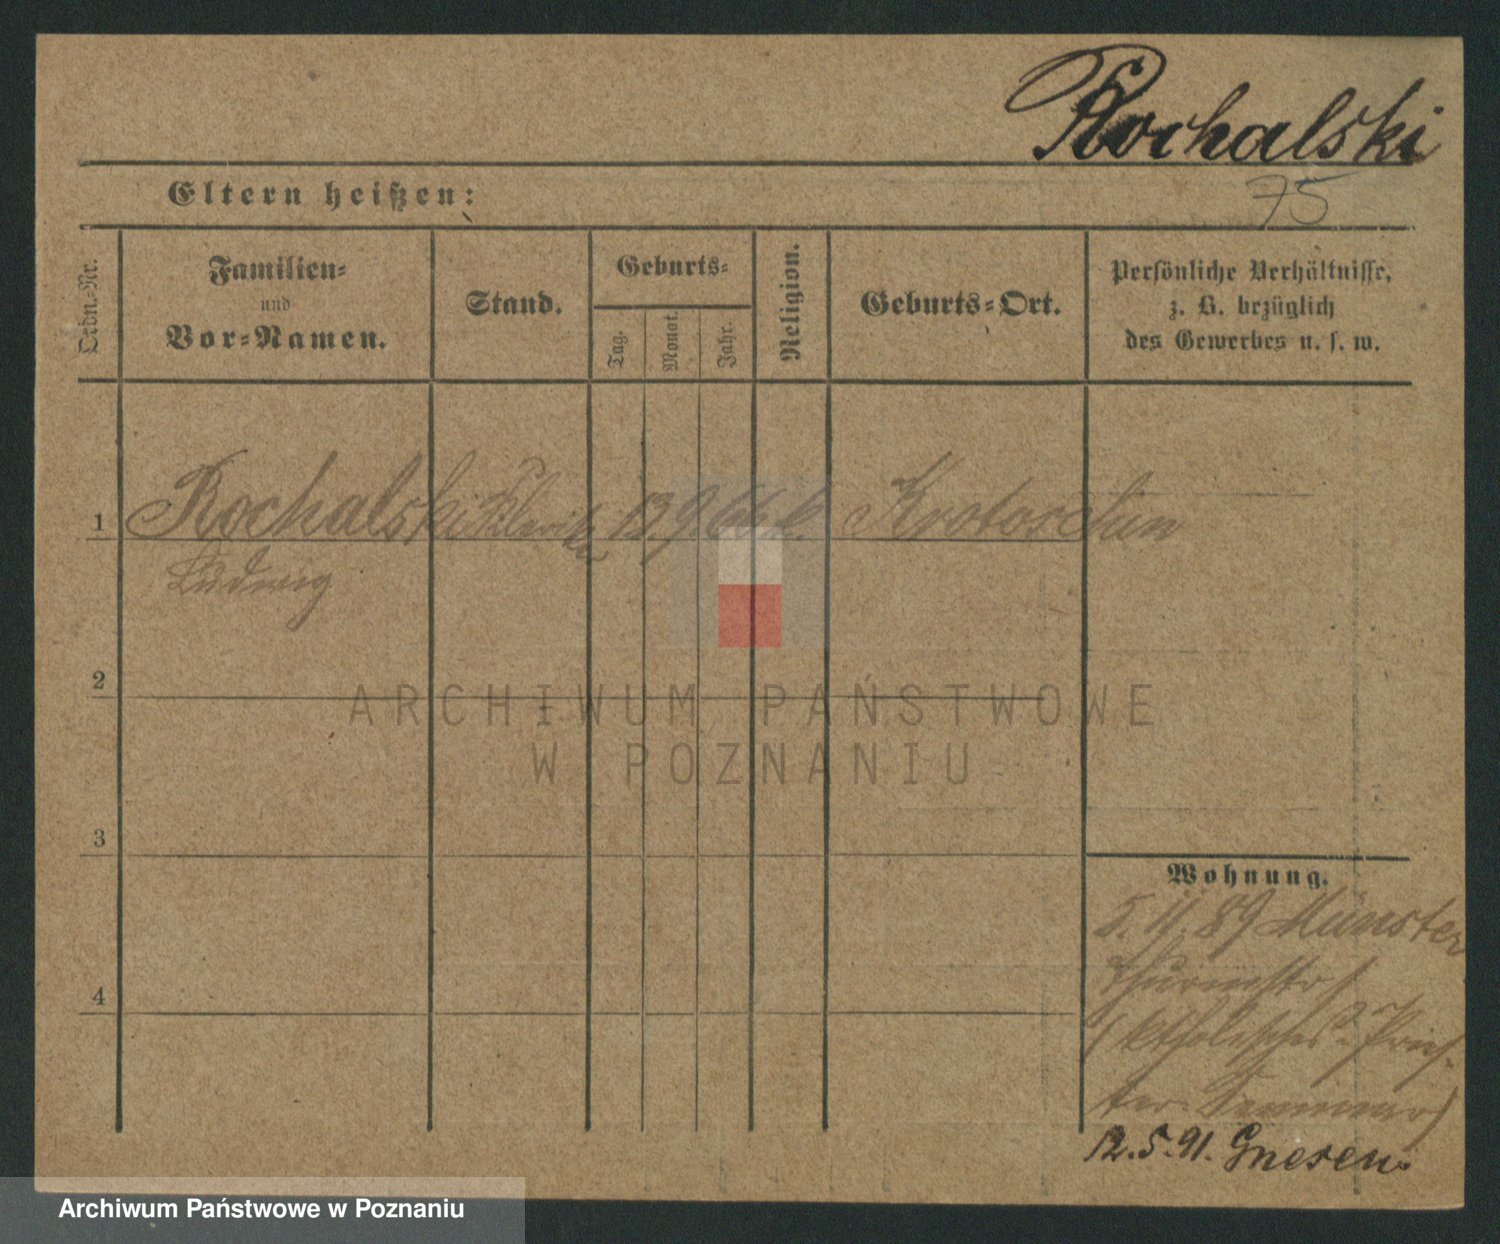 Rochalski
75
Eltern heißen:
Ordn.-Nr.
Familien-
und
Vor-Namen.
Stand.
Geburts-
Tag.
Monat.
Jahr.
Religion.
Geburts-Ort.
Persönliche Verhältnisse,
z. B. bezüglich
des Gewerbes u. s. w.
1 Rochalski Kleriker 12. 9. 66 k. Krotoschin
Ludwig
2
3
4
ARCHIWUM PAŃSTWOWE
W POZNANIU
Wohnung.
5. 11. 89 Münster
Thurmstr
(katholisches Pries-
ter-Seminar)
12. 5. 91. Gnesen.
Archiwum Państwowe w Poznaniu